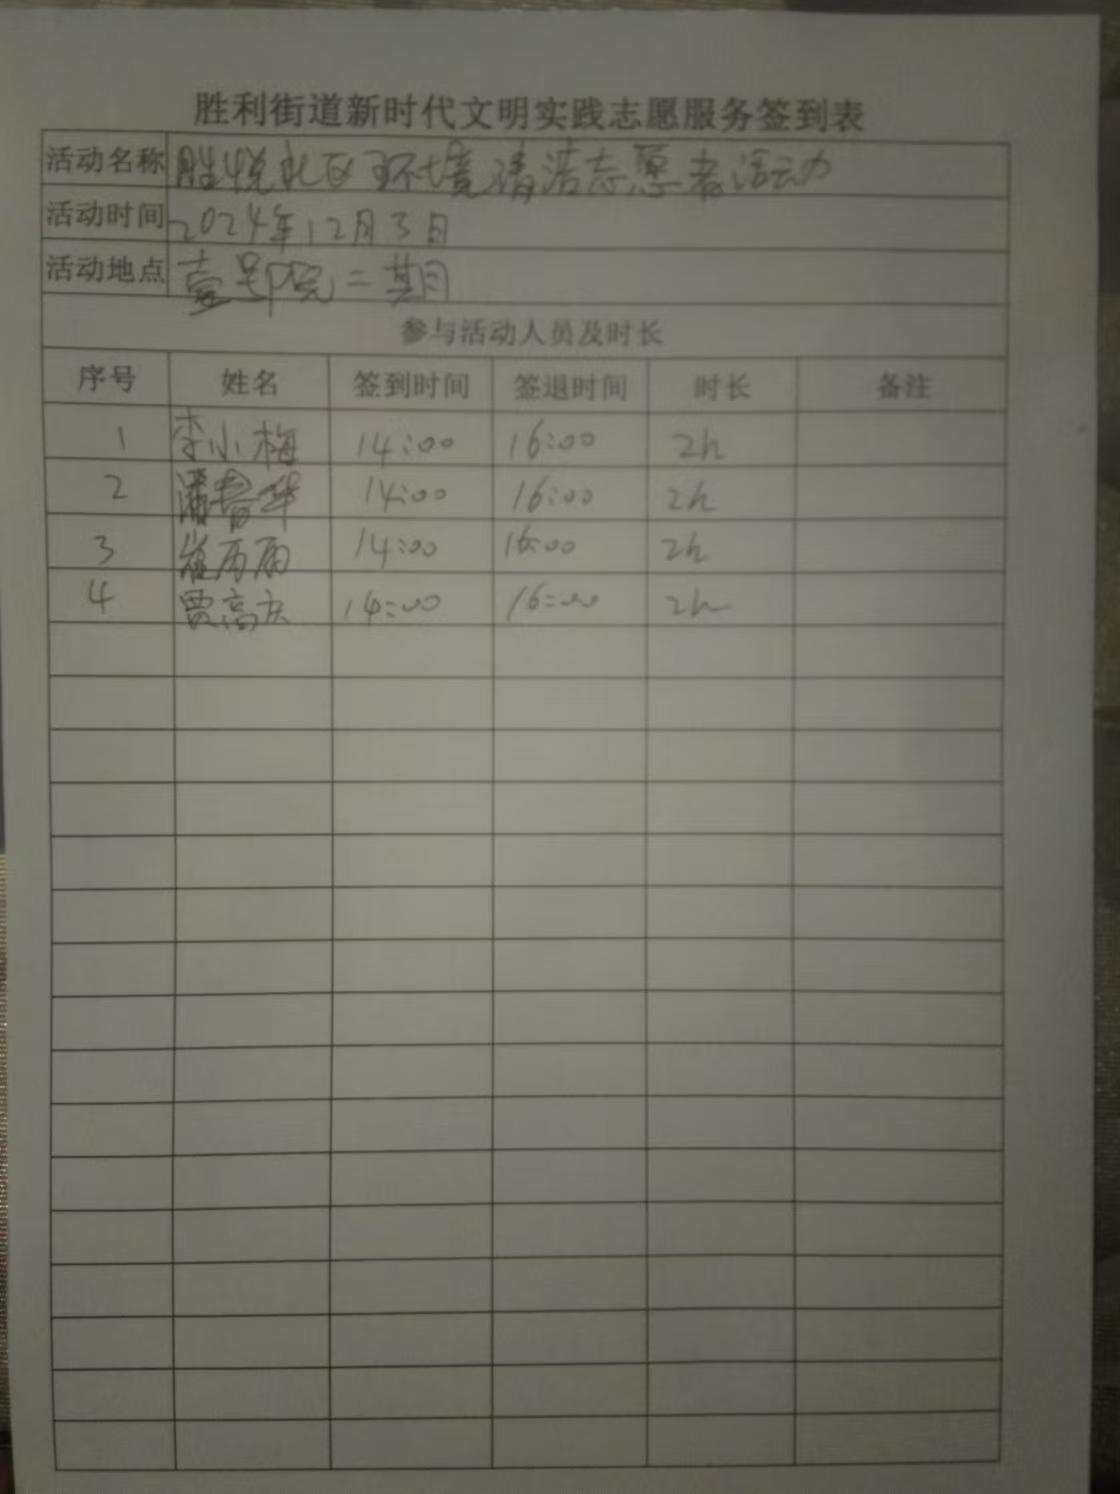 胜利街道新时代文明实践志愿服务签到表
活动名称 胜悦社区环境清洁志愿者活动
活动时间 2024年12月3日
活动地点 壹号院二期
参与活动人员及时长
序号 姓名 签到时间 签退时间 时长 备注
1 李小梅 14:00 16:00 2h
2 潘鲁华 14:00 16:00 2h
3 崔雨 14:00 16:00 2h
4 贾高庆 14:00 16:00 2h